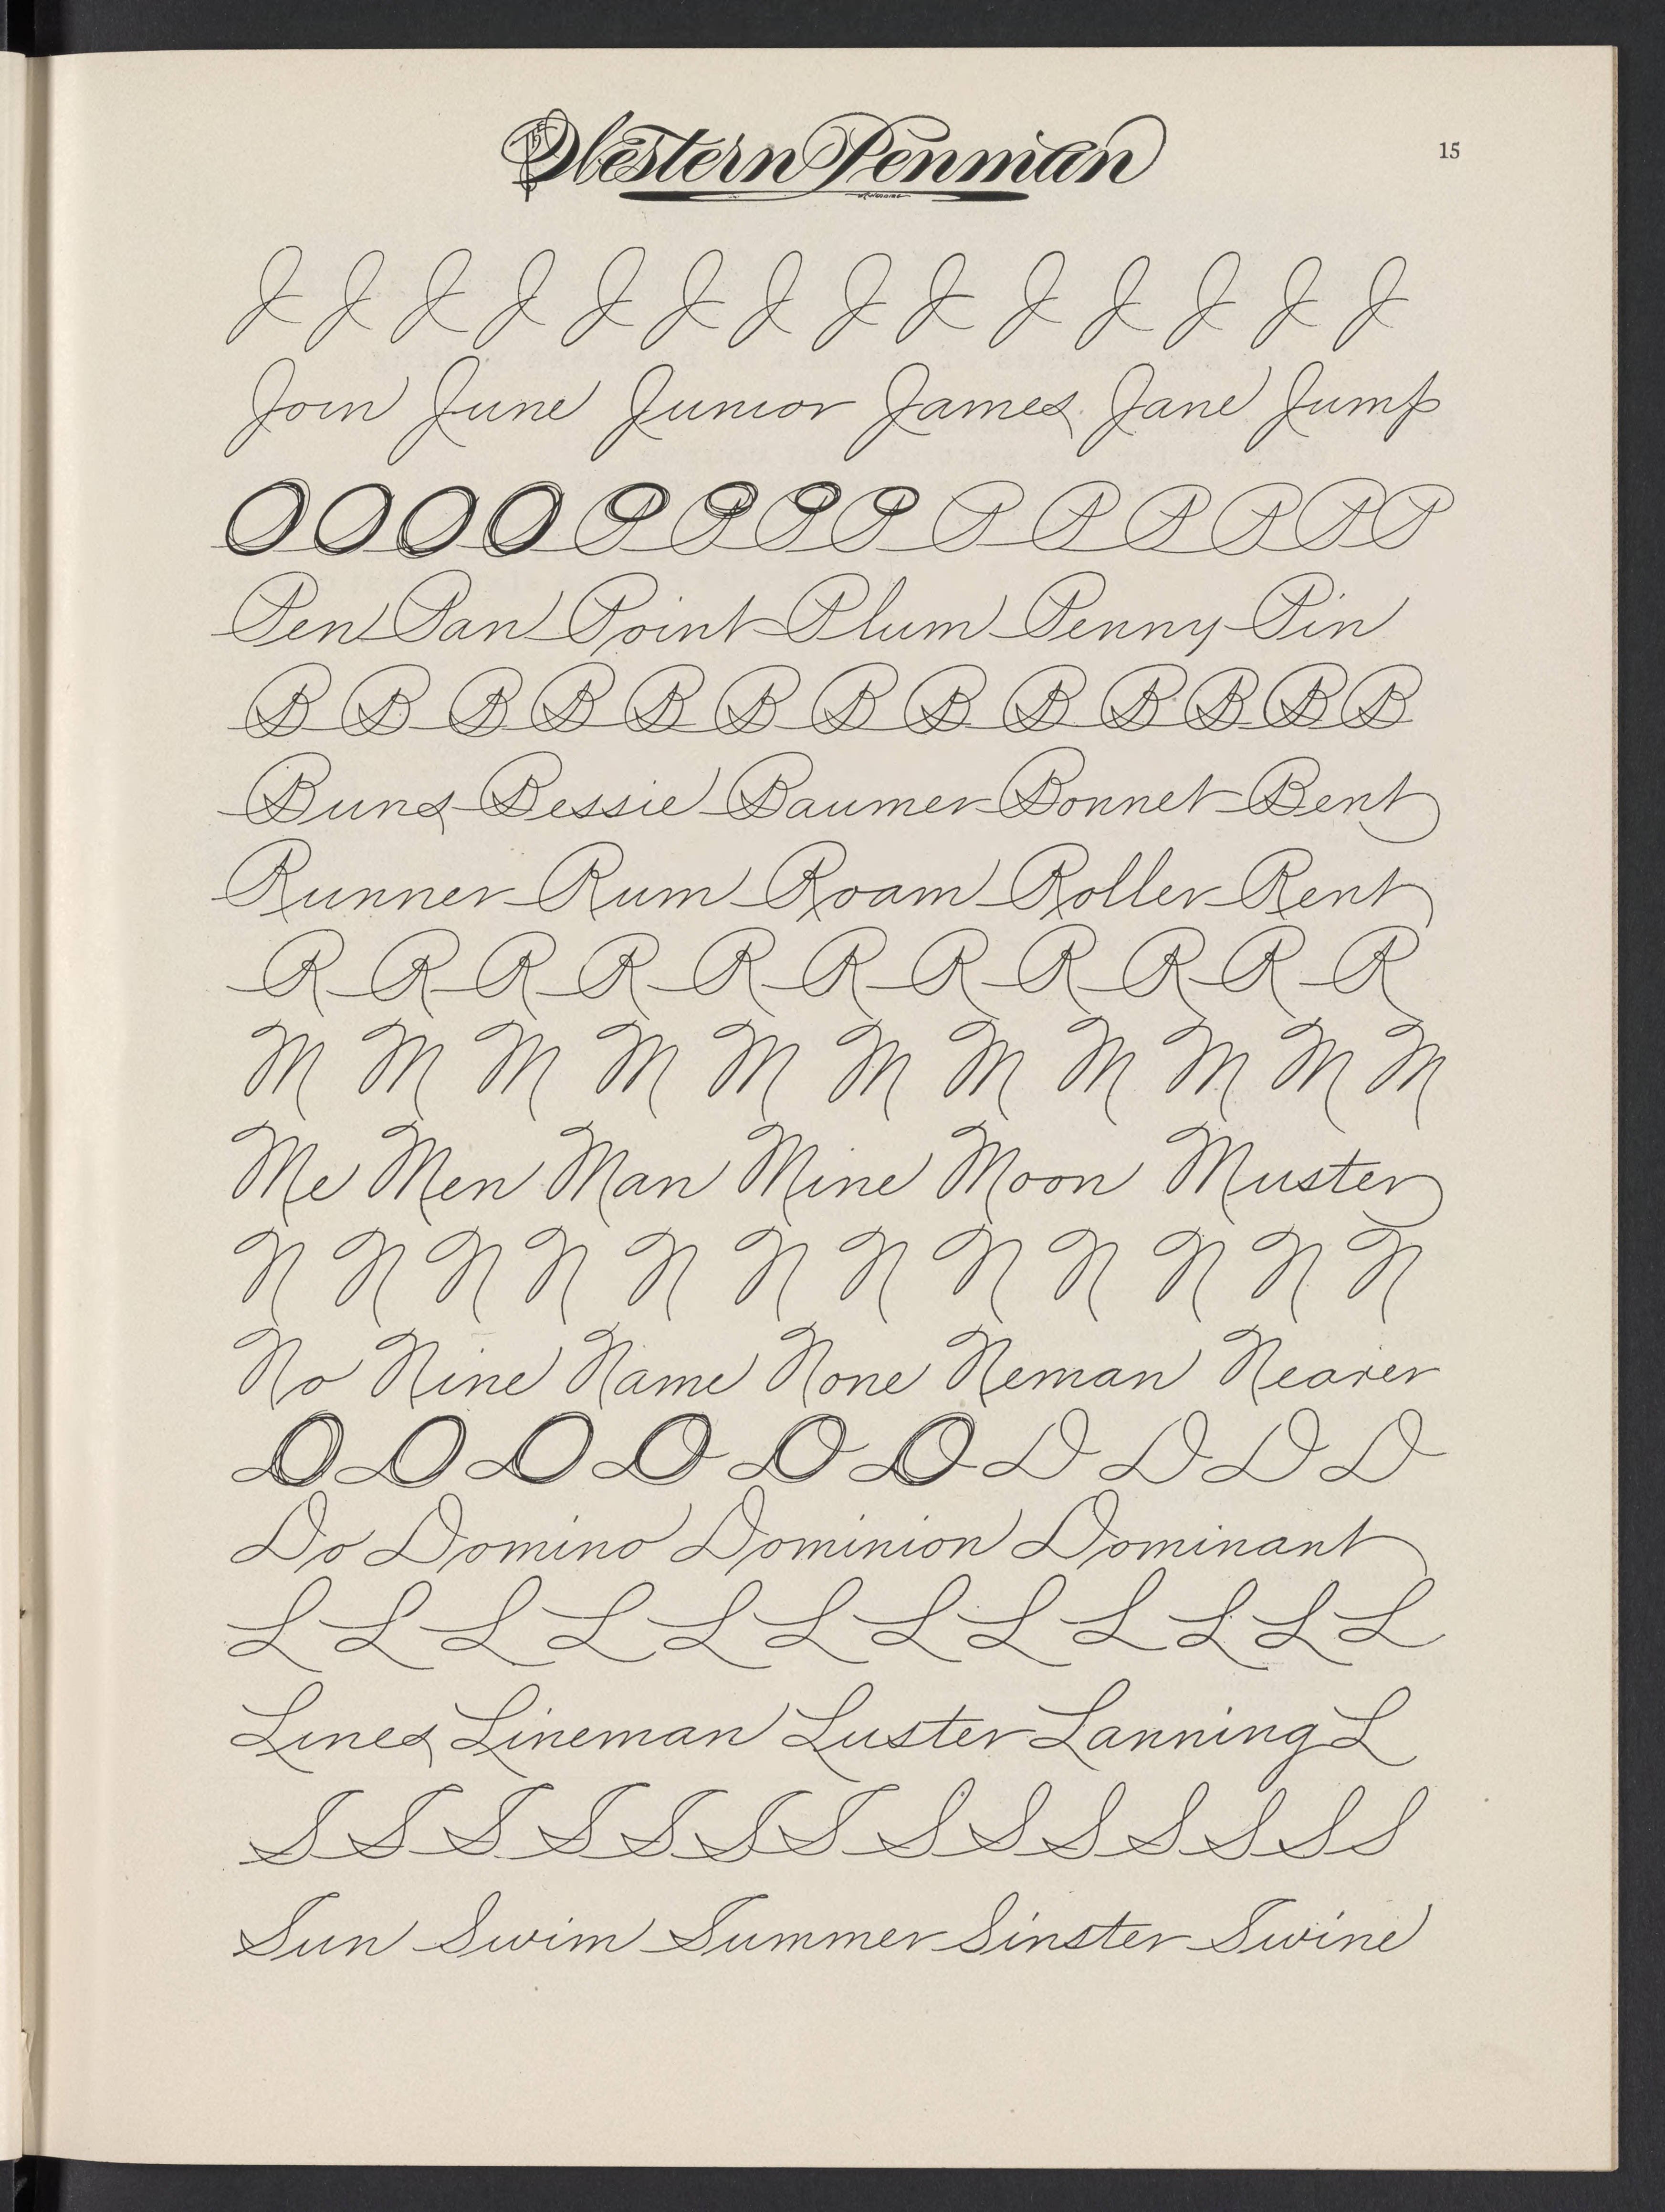 The Western Penman
15
J J J J J J J J J J J J J J
Join June Junior James Jane Jump
O O O O P P P P P P P P P P
Pen Pan Point Plum Penny Pin
B B B B B B B B B B B B B
Buns Bessie Baumer Bonnet Bent
Runner Rum Roam Roller Rent
R R R R R R R R R R R
M M M M M M M M M M M
Me Men Man Mine Moon Muster
N N N N N N N N N N N N
No Nine Name None Neman Nearer
O O O O O O D D D D
Do Domino Dominion Dominant
L L L L L L L L L L L L
Lines Lineman Luster Lanning L
S S S S S S S S S S S S S S
Sun Swim Summer Sinster Swine